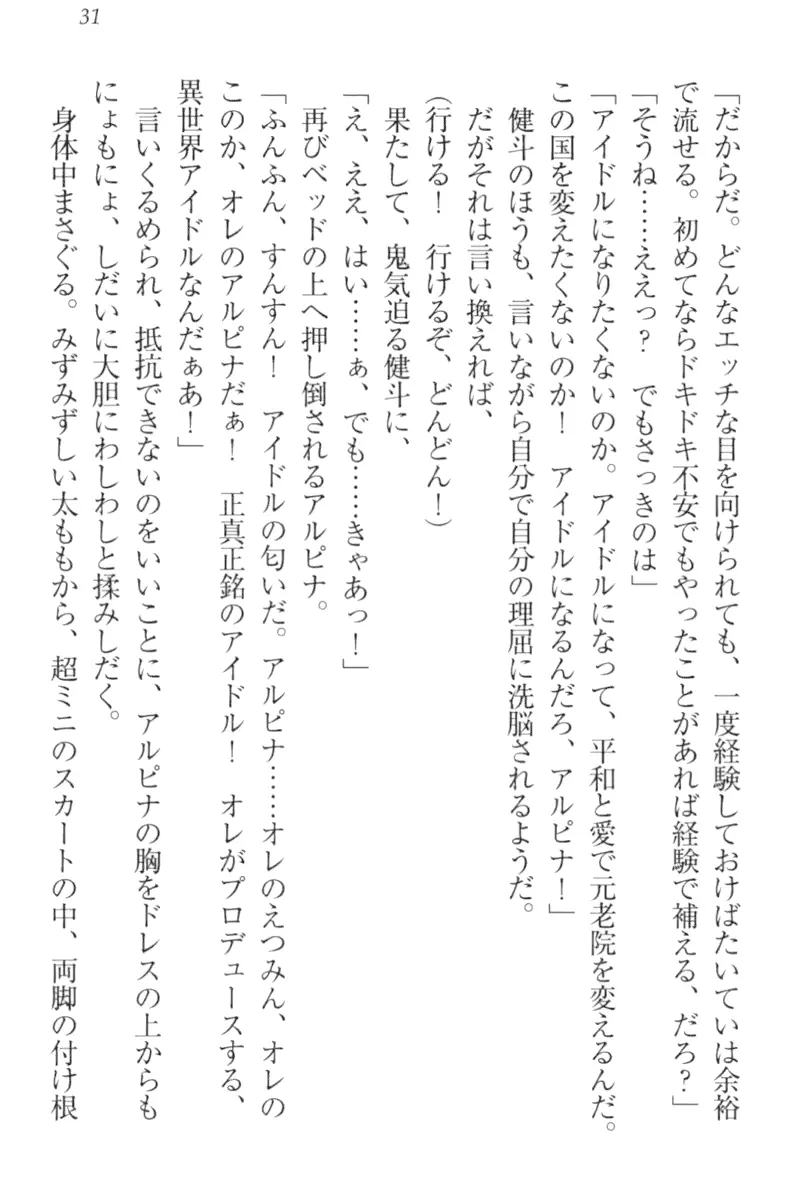 31
「だからだ。どんなエッチな目を向けられても、一度経験しておけばたいていは余裕
で流せる。初めてならドキドキ不安でもやったことがあれば経験で補える、だろ？」
「そうね……ええっ？　でもさっきのは」
「アイドルになりたくないのか。アイドルになって、平和と愛で元老院を変えるんだ。
この国を変えたくないのか！　アイドルになるんだろ、アルピナ！」
健斗のほうも、言いながら自分で自分の理屈に洗脳されるようだ。
だがそれは言い換えれば、
（行ける！　行けるぞ、どんどん！）
果たして、鬼気迫る健斗に、
「え、ええ、はい……ぁ、でも……きゃあっ！」
再びベッドの上へ押し倒されるアルピナ。
「ふんふん、すんすん！　アイドルの匂いだ。アルピナ……オレのえつみん、オレの
このか、オレのアルピナだぁ！　正真正銘のアイドル！　オレがプロデュースする、
異世界アイドルなんだぁあ！」
言いくるめられ、抵抗できないのをいいことに、アルピナの胸をドレスの上からも
にょもにょ、しだいに大胆にわしわしと揉みしだく。
身体中まさぐる。みずみずしい太ももから、超ミニのスカートの中、両脚の付け根